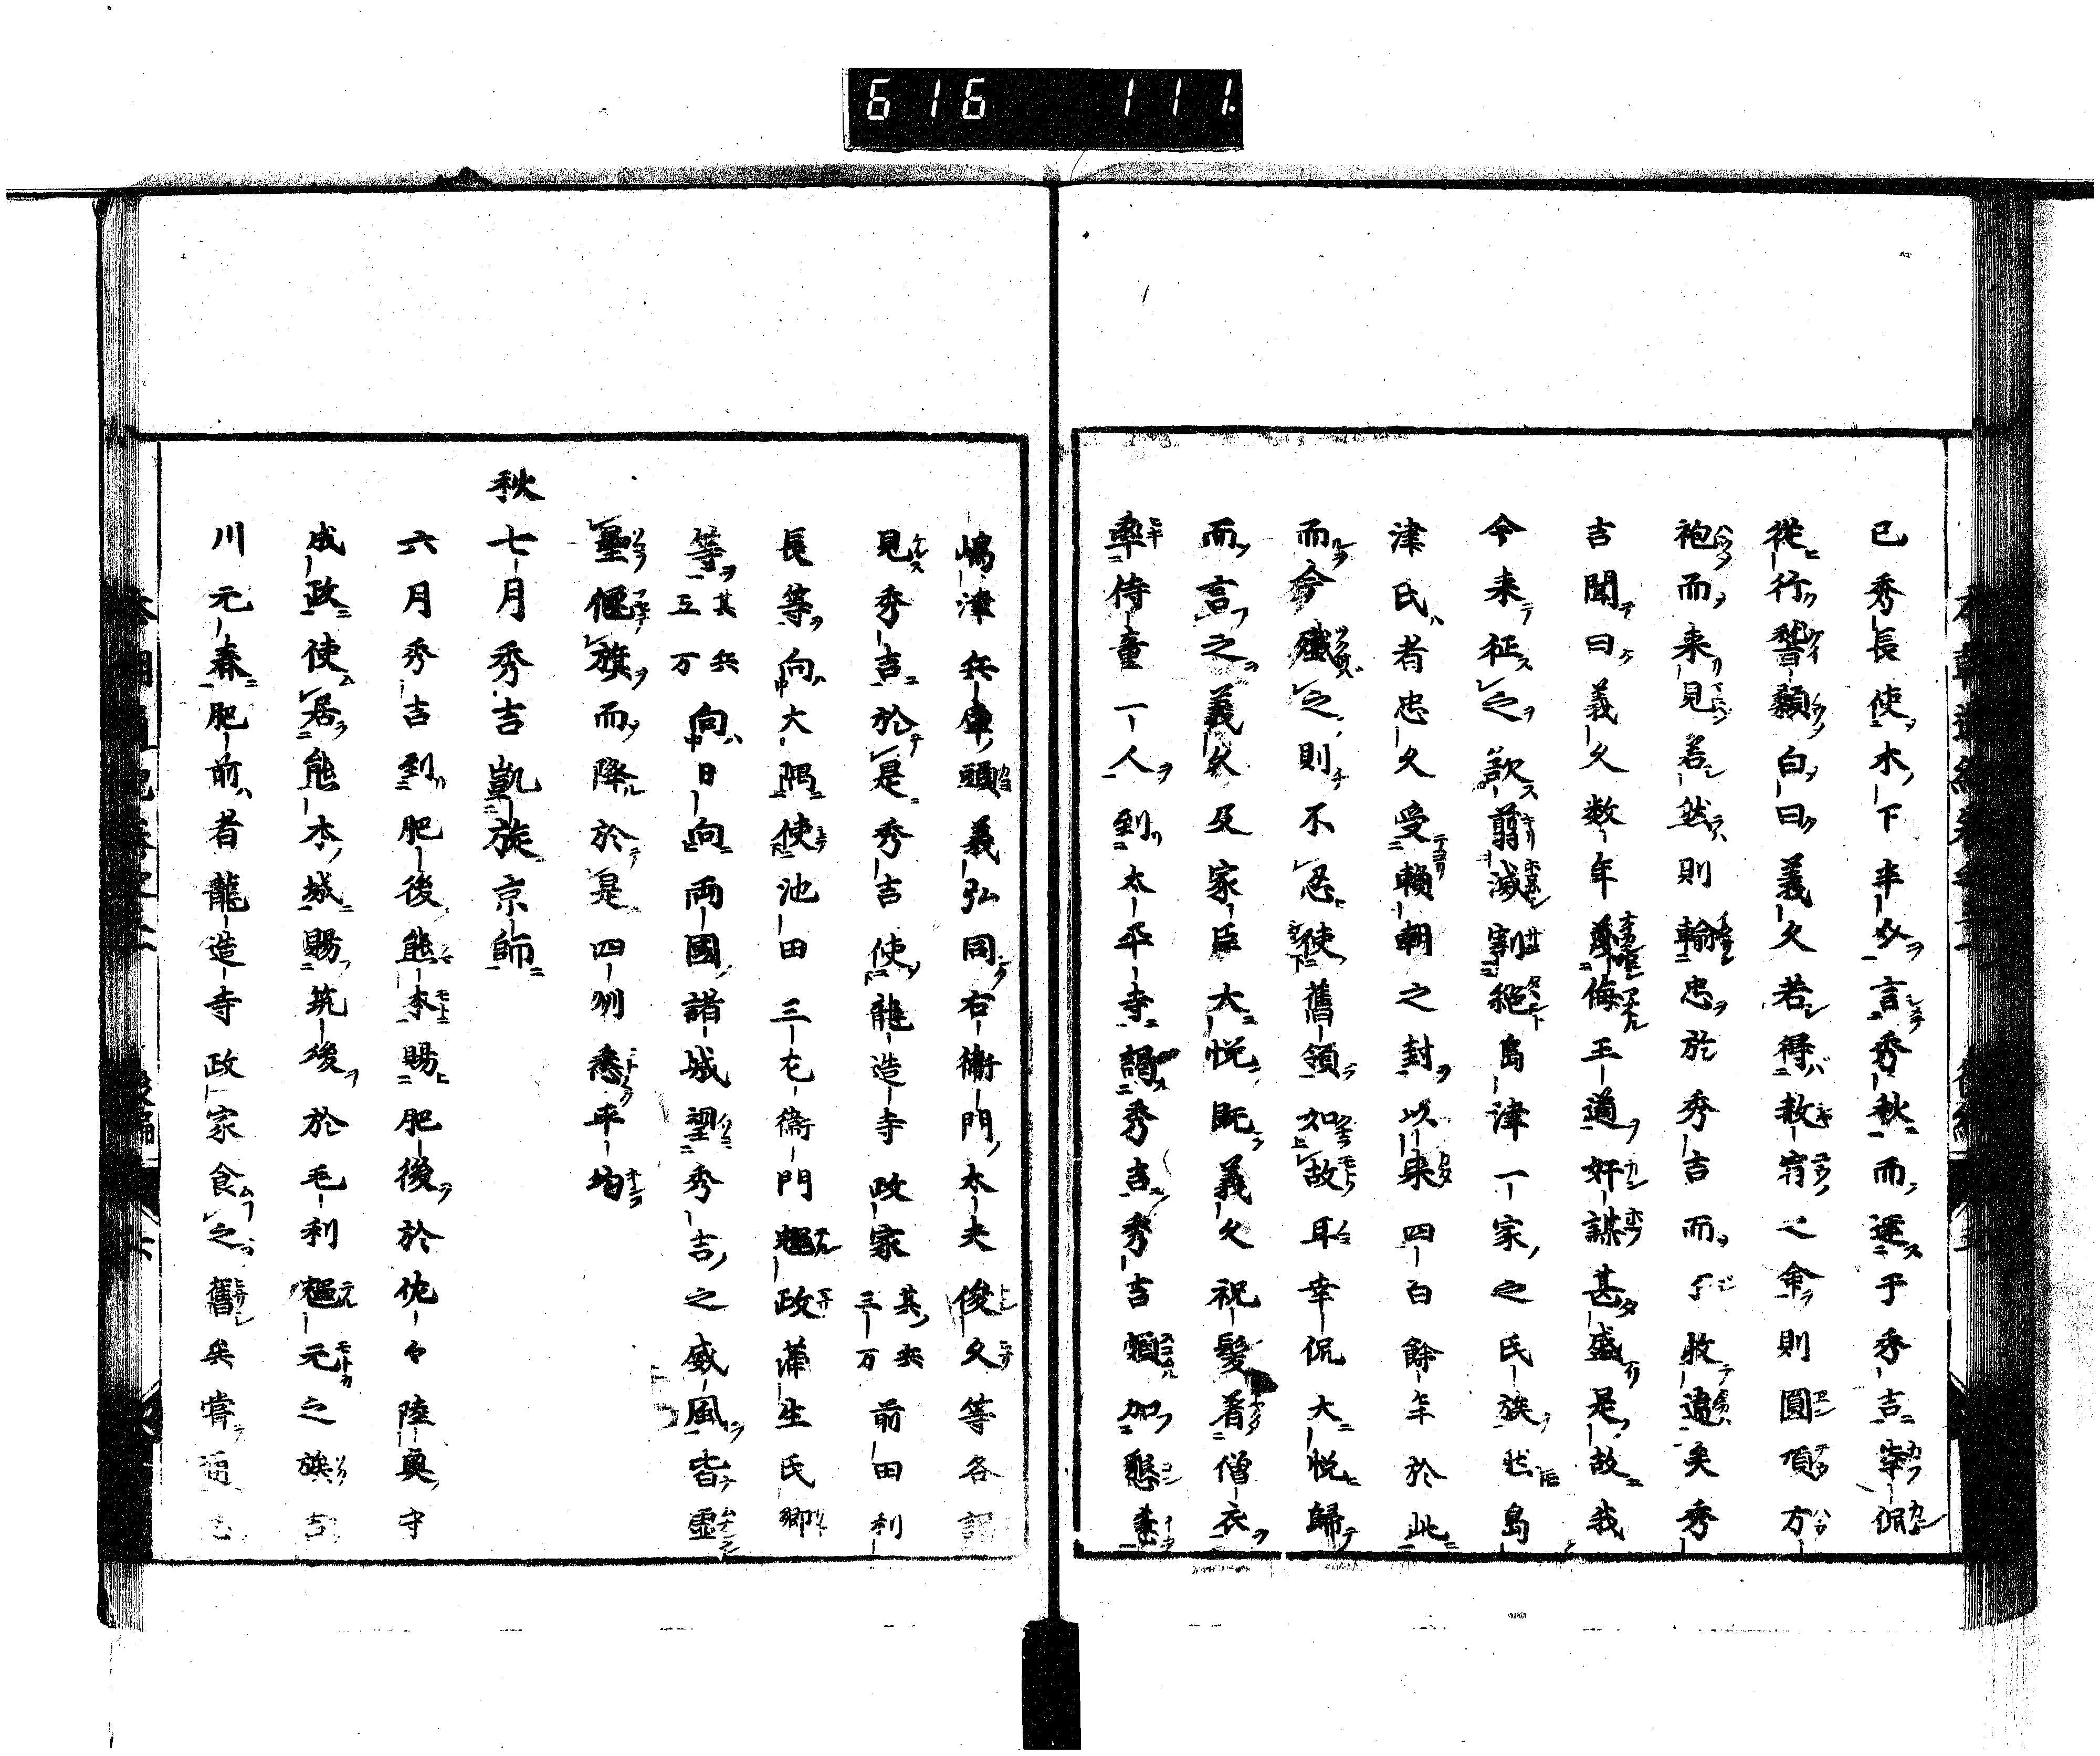 616 111
已秀長使木下半介言秀秋而達于秀吉宰侃
從行稽顙白曰義久若得赦宥之命則圓頂方
袍而来見若然則輸忠於秀吉而収邊矣秀
吉聞曰義久数年蔑侮王道奸謀甚盛是故我
今来征之欲翦滅割絶島津一家之氏族然島
津氏者忠久受賴朝之封以来四百餘年於此
而今殱之則不忍使舊領如故耳幸侃大悦歸
而言之義久及家臣大悦既義久祝髮着僧衣
率侍童一人到太平寺謁秀吉秀吉頗加懇
嶋津兵庫頭義弘同右衛門太夫俊久等各
見秀吉於是秀吉使龍造寺政家其兵三万前田利
長等向大隅使池田三左衛門輝政蒲生氏郷
等其兵五万向日向両國諸城望秀吉之威風皆
壘偃旗而降於是四州悉平均
秋七月秀吉凱旋京師
六月秀吉到肥後熊本賜肥後於佐々陸奥守
成政使居熊本城賜筑後於毛利輝元之族吉
川元春肥前者龍造寺政家食之舊矣嘗通